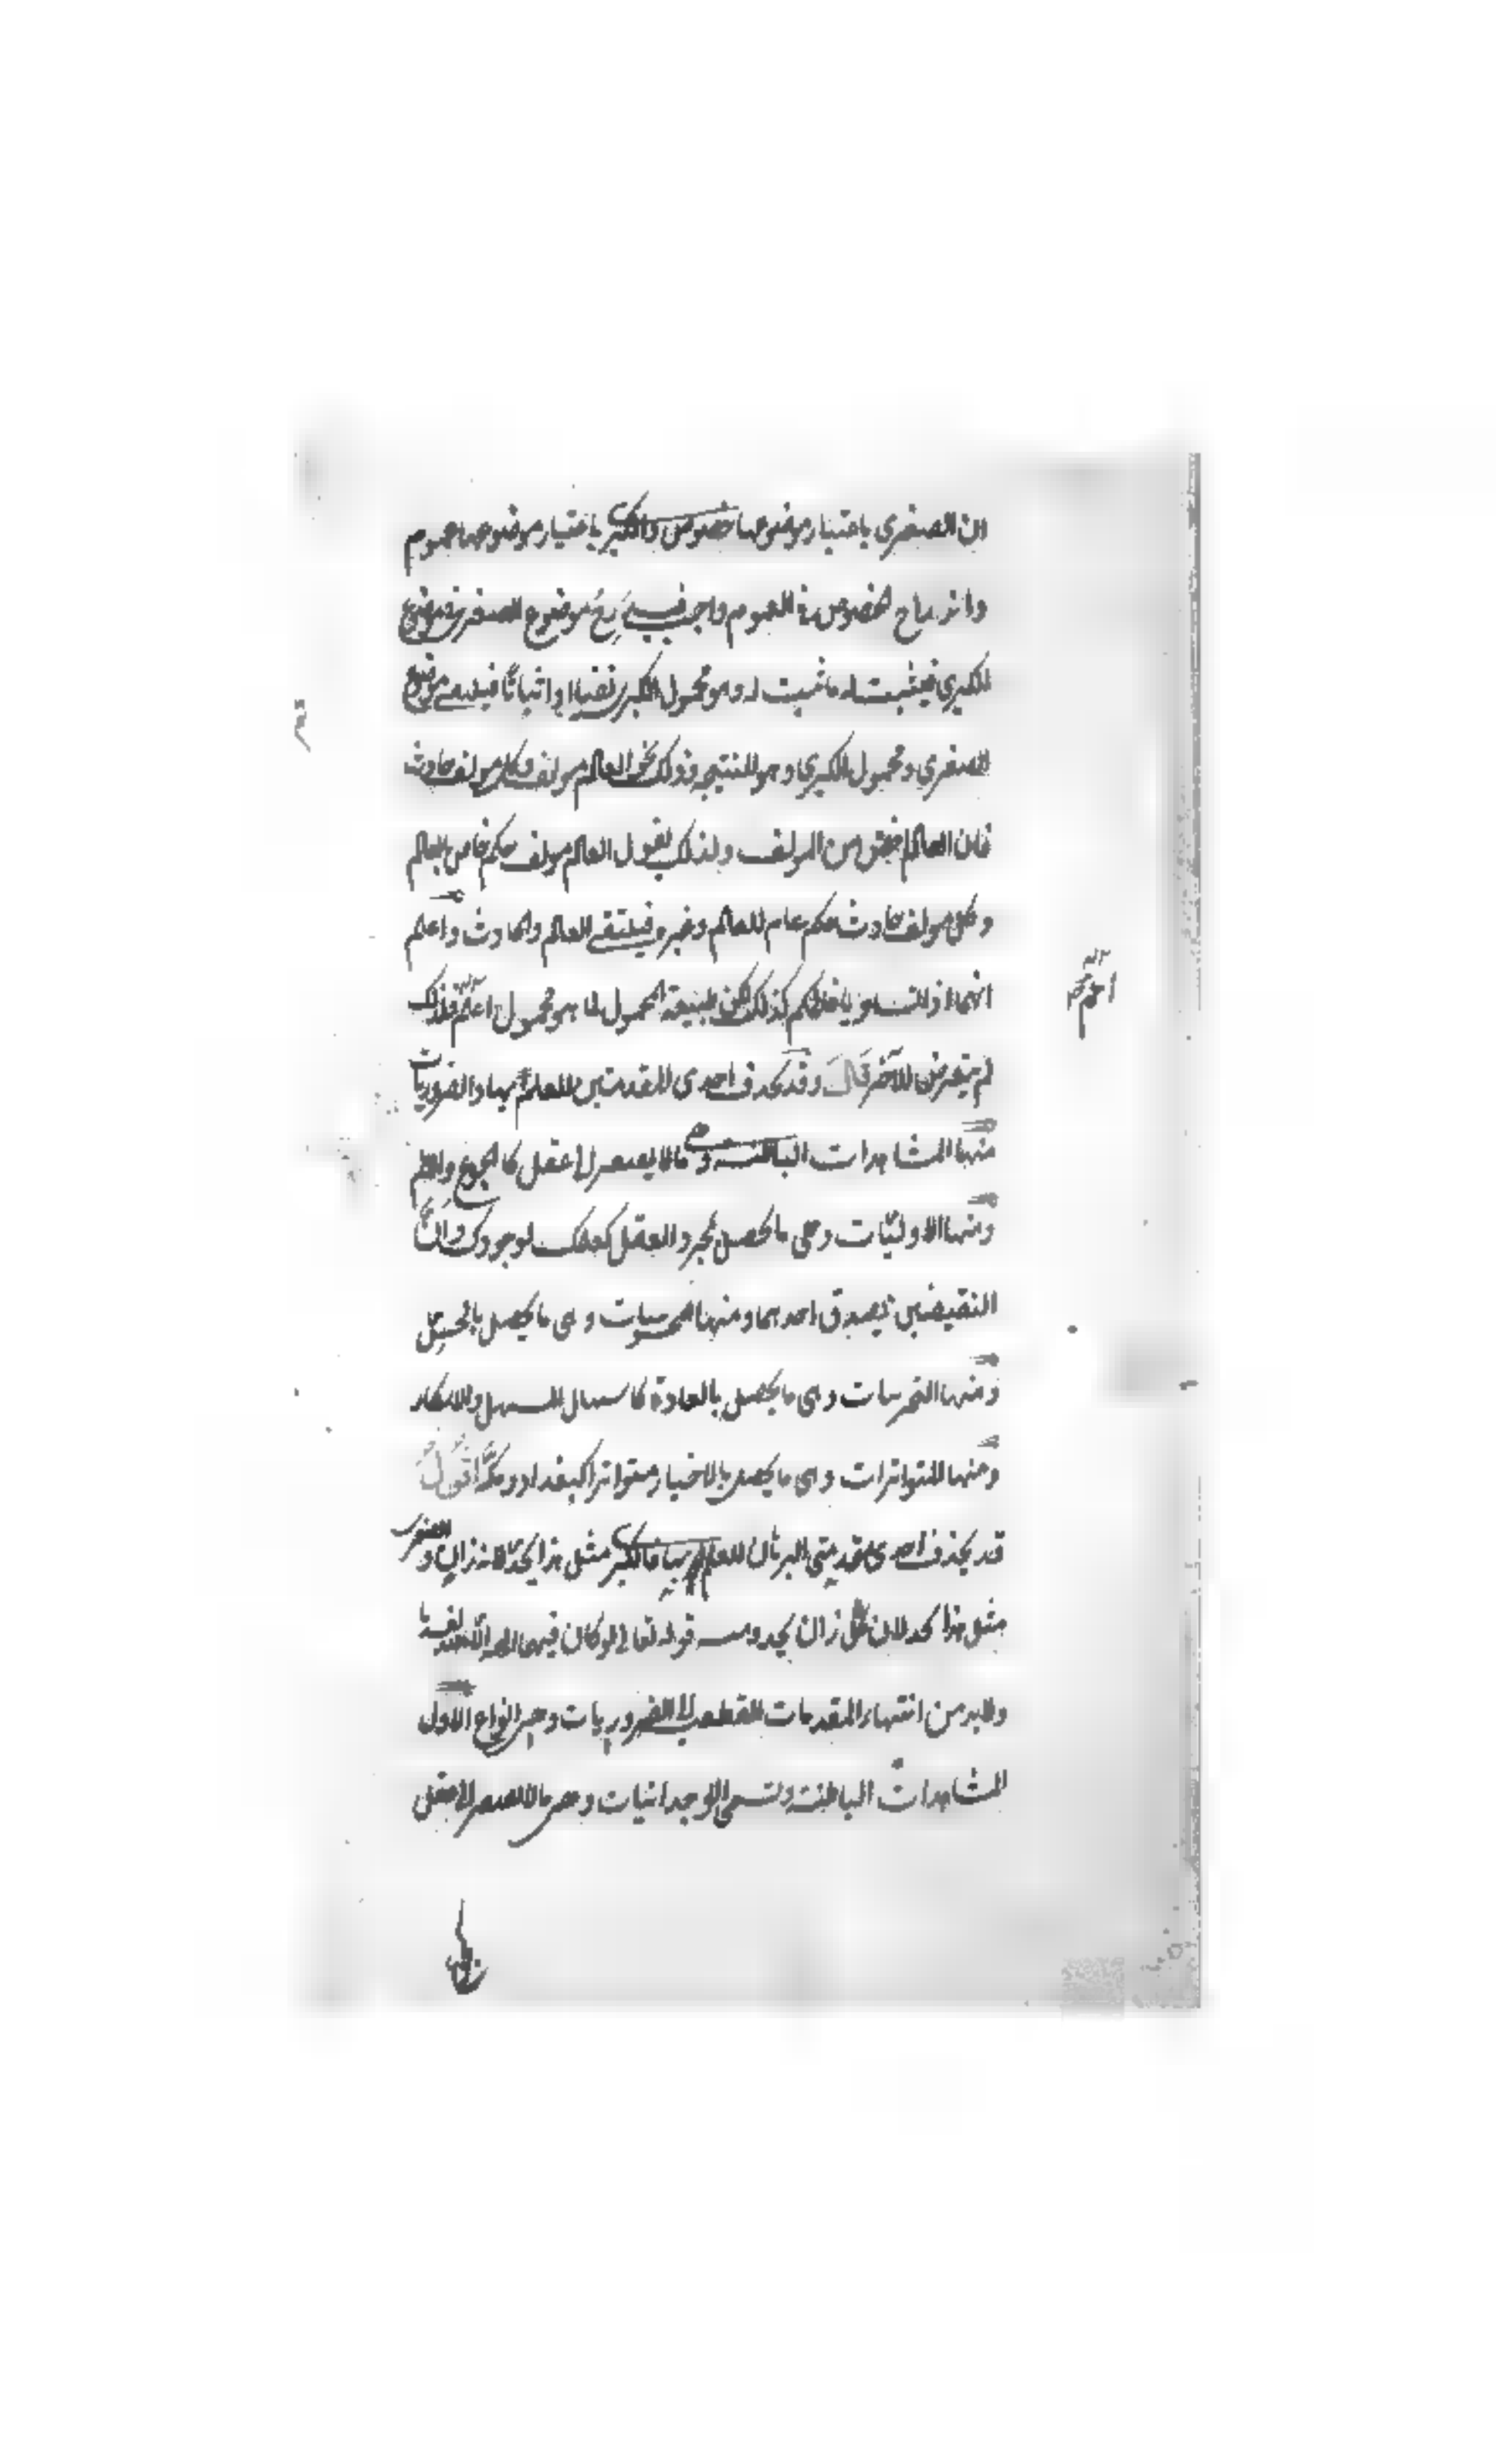 ان الصغرى باعتبار موضوعها خصوص والكبرى باعتبار موضوعها عموم
واندراج الخصوص في العموم واجب فيندرج موضوع الصغرى في موضوع
الكبرى فيثبت له ما ثبت له وهو محمول الكبرى نفيا او اثباتا فيلتقي موضوع
الصغرى ومحمول الكبرى وهو النتيجة وذلك نحو العالم مولف وكل مولف حادث
فان العالم اخص من المولف ولذلك نقول العالم مولف حكم خاص بالعالم
وكل مولف حادث حكم عام للعالم وغيره فيلتقي العالم والحادث واعلم
انهما اذا تساويا فالحكم كذلك لكن طبيعة المحمول لما هو محمول اعم فلذلك
لم يتعرض للآخر قال وقد تحذف احدى المقدمتين للعلم بها والضروريات
منها المشاهدات الباطنة وهي ما لا يفتقر الى عقل كالجوع والالم
ومنها الاوليات وهي ما يحصل بمجرد العقل كعلمك بوجودك وان
النقيضين يصدق احدهما ومنها المحسوسات وهي ما يحصل بالحس
ومنها التجربيات وهي ما يحصل بالعادة كاسهال المسهل والاسكار
ومنها المتواترات وهي ما يحصل بالاخبار متواترا كبغداد ومكة اقول
قد يحذف احدى مقدمتي البرهان للعلم بها فالكبرى مثل هذا يحد لانه زان و الصغرى
مثل هذا يحد لان كل زان يحد ومنه قوله تعالى لو كان فيهما الهة الا الله لفسدتا
ولابد من انتهاء المقدمات القطعية الى الضروريات وهي انواع الاول
المشاهدات الباطنة وتسمى الوجدانيات وهي ما لا يفتقر الى عقل